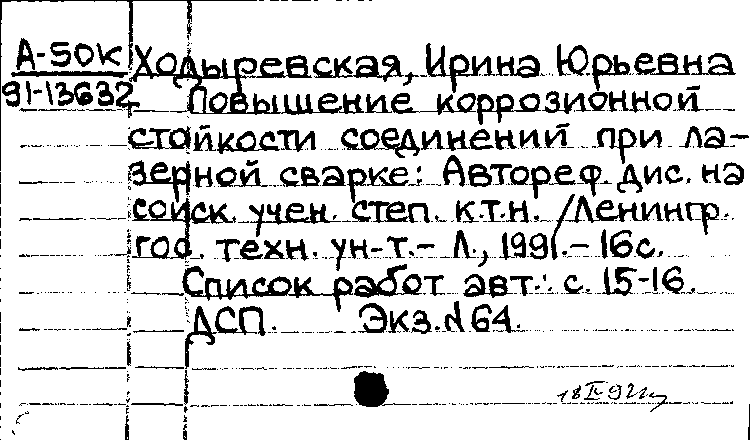 А-50К Ходыревская, Ирина Юрьевна
91-13632 Повышение коррозионной
стойкости соединений при ла-
зерной сварке: Автореф. дис. на
соиск. учен. степ. к.т.н. /Ленингр.
гос. техн. ун-т.- Л., 1991.- 16с.
Список работ авт.: с. 15-16.
ДСП. Экз.N64.